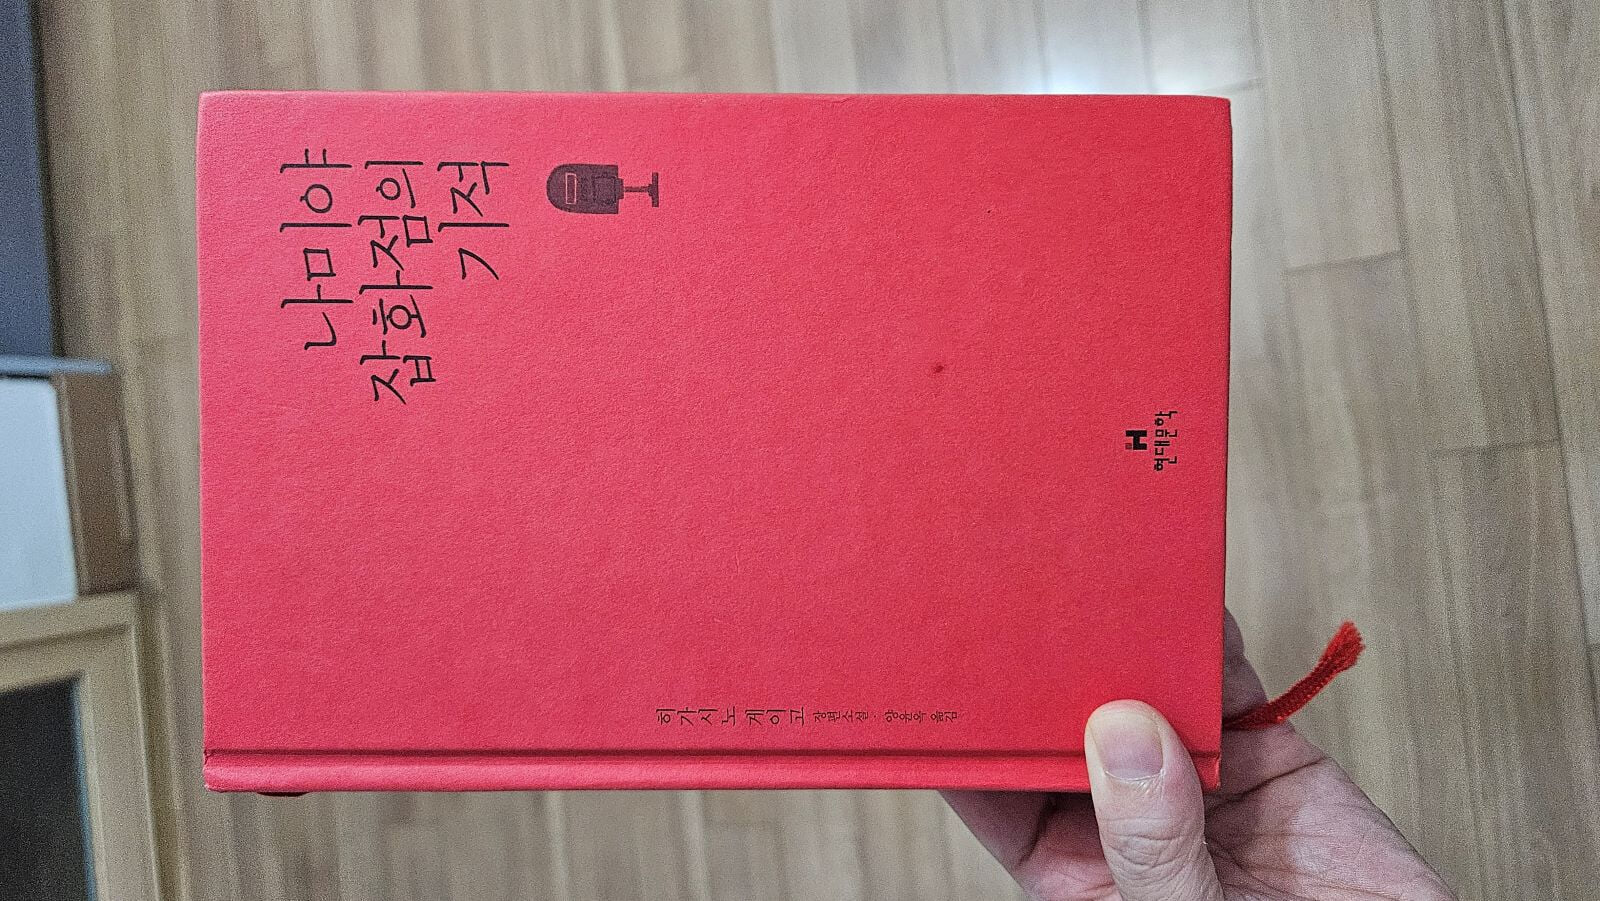 나미야
잡화점의
기적
히가시노 게이고 장편소설 · 양윤옥 옮김
H
현대문학